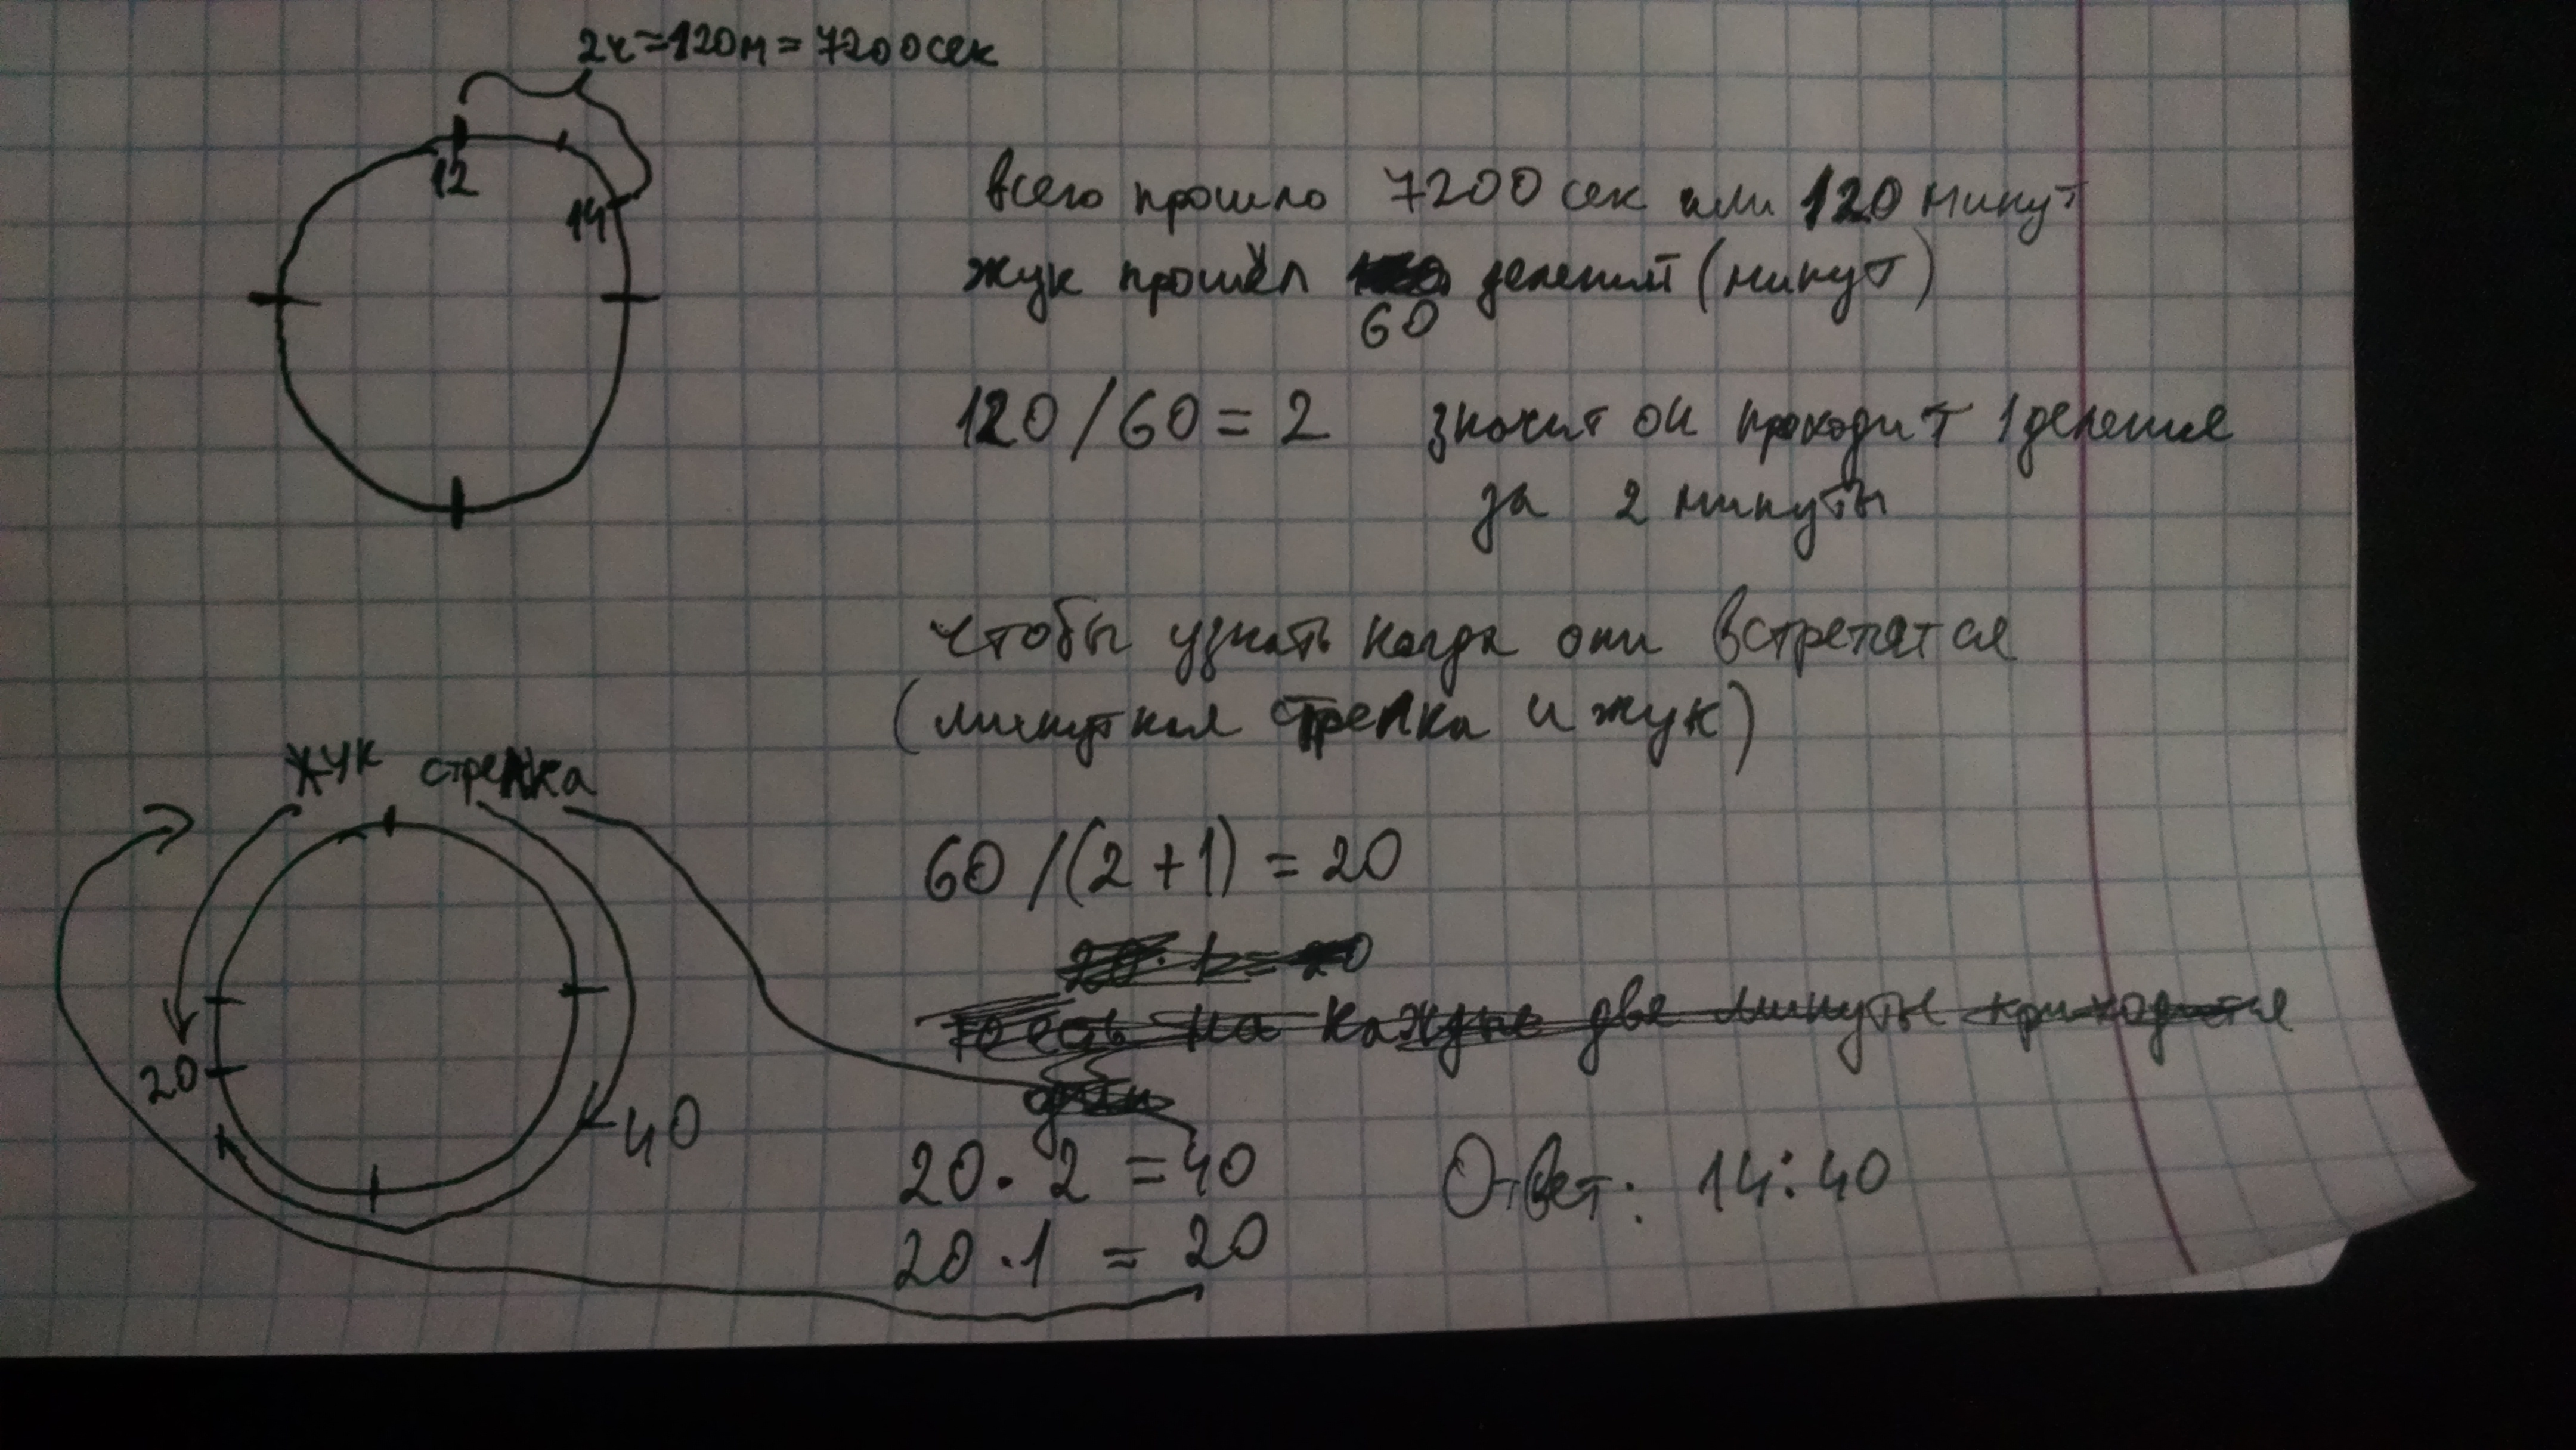 2ч=120м=7200сек
12
14
всего прошло 7200 сек или 120 минут
жук прошёл делений (минут)
60
120/60=2 значит он проходит 1 деление
за 2 минуты
чтобы узнать когда они встретятся
(минутная стрелка и жук)
жук стрелка
60/(2+1)=20
то есть на каждые две минуты приходится
20
40
20·2=40
Ответ: 14:40
20·1=20